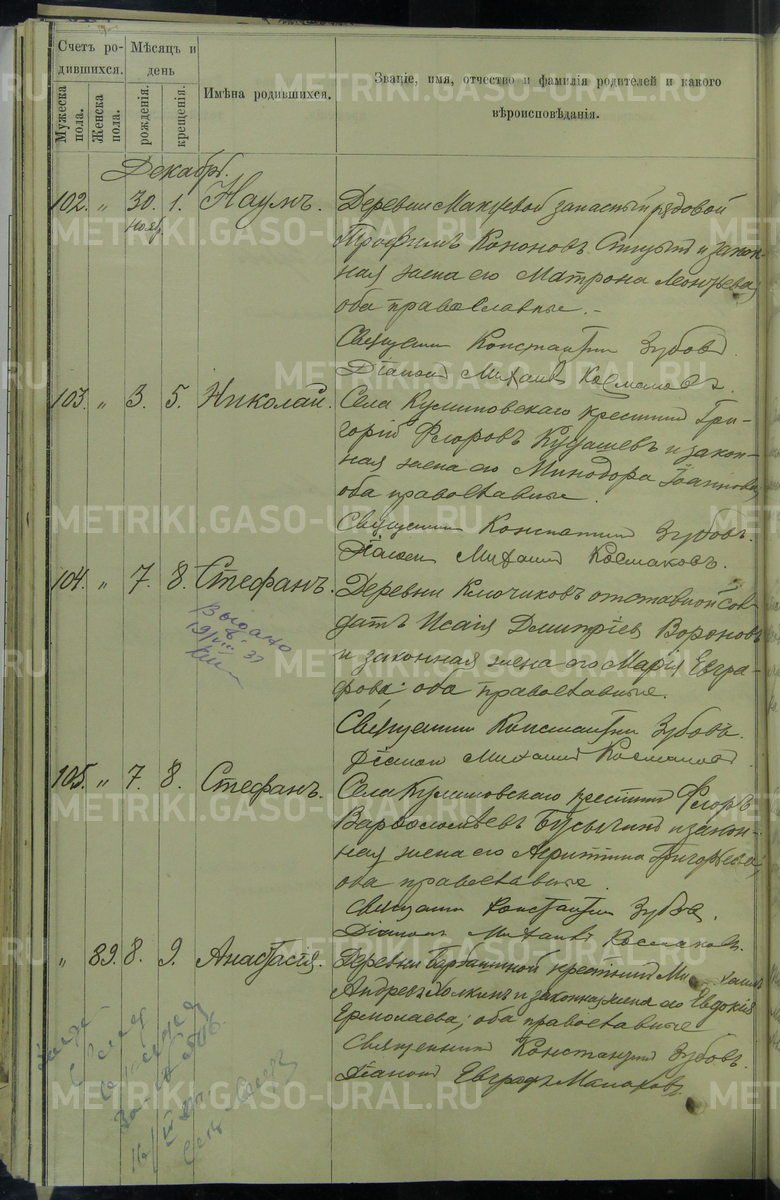 Счетъ ро-
дившихся.
Мѣсяцъ и
день
Мужеска
пола.
Женска
пола.
рожденія.
крещенія.
Имѣна родившихся.
Званіе, имя, отчество и фамилія родителей и какого
вѣроисповѣданія.
Декабрь.
102. " 30. 1. Наумъ. Деревни запасный рядовой
нояб. Трофимъ Кононовъ и закон-
ная жена его Матрона Леонтьева;
оба православные.-
Священник Константин Зубовъ.
Діакон Михаилъ Космаковъ.
103. " 3. 5. Николай. Села Кулиновскаго крестьянин Гри-
горій Флоровъ Кудашевъ и закон-
ная жена его Минодора Іоаннова,
оба православные.
Священник Константин Зубовъ.
Діакон Михаил Космаковъ.
104. " 7. 8. Стефанъ. Деревни Ключиковъ отставной сол-
датъ Исаія Дмитріев Вороновъ
и законная жена его Марія Евгра-
фова: оба православные.
Выдано
19/VIII 37
Священник Константин Зубовъ.
Діакон Михаил Космаков
105. " 7. 8. Стефанъ. Села Кулиновскаго крестьянин Флоръ
Варфоломѣевъ Бусыгин и закон-
ная жена его Агриппина Григорьева;
оба православные.
Священник Константин Зубов.
Діакон Михаилъ Космаков.
" 89. 8. 9. Анастасія. Деревни крестьянин Ми-хаилъ
Андреев Холкинъ и законная жена его Евдокія
Ермолаева; оба православные
Священник Константин Зубовъ.
Діакон Евграф Малахов.
METRIKI.GASO-URAL.RU